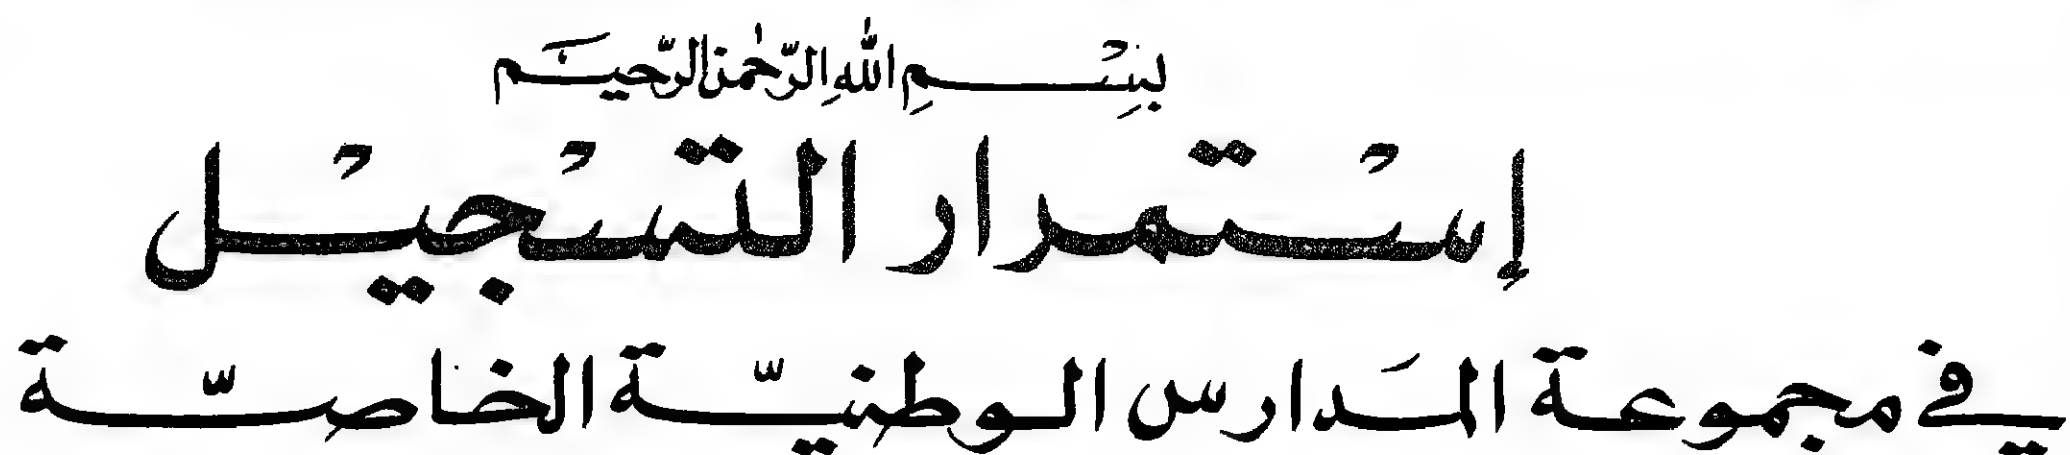 بِسْمِ اللّٰهِ الرَّحْمٰنِ الرَّحِيَم
إسْتمرار التسْجيْل
في مجموعة المَدارس الوطنيّة الخاصّة